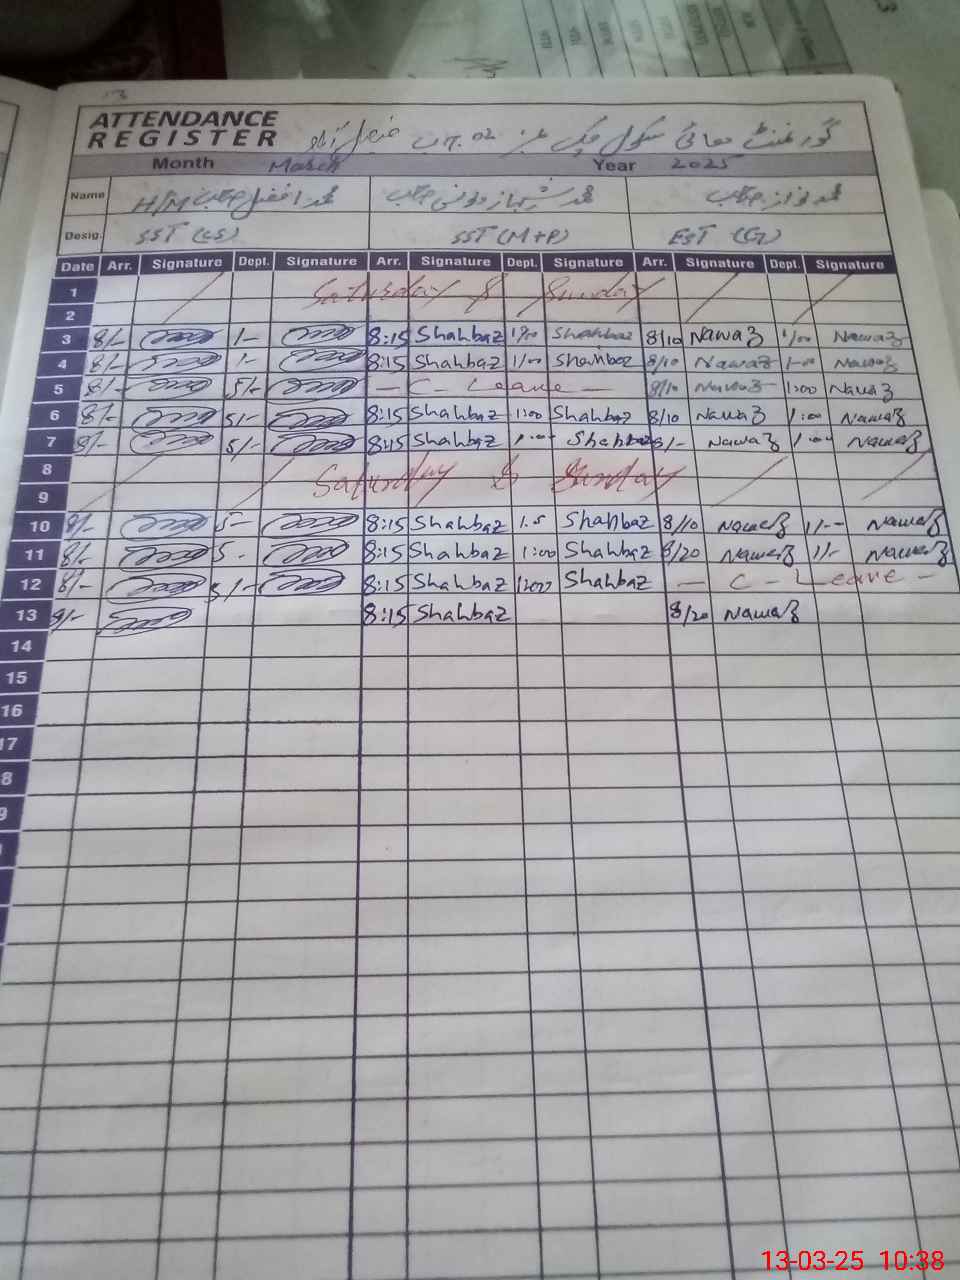 ATTENDANCE
REGISTER گورنمنٹ ھائی سکول چک نمبر
Month March Year 2025
Name H/M محمد افضل صاحب محمد شہباز صاحب محمد نواز صاحب
Desig. SST (CS) SST (M+P) EST (G)
Date Arr. Signature Dept. Signature Arr. Signature Dept. Signature Arr. Signature Dept. Signature
1 Saturday & Sunday
2
3 8/- 1- 8:15 Shahbaz 1/00 Shahbaz 8/10 Nawaz 1/00 Nawaz
4 8/- 1- 8:15 Shahbaz 1/00 Shahbaz 8/10 Nawaz 1-00 Nawaz
5 8/- 5/- - C - Leave - 8/10 Nawaz 1:00 Nawaz
6 8/- 5/- 8:15 Shahbaz 1:00 Shahbaz 8/10 Nawaz 1:00 Nawaz
7 8/- 5/- 8:15 Shahbaz 1:00 Shahbaz 8/- Nawaz 1:00 Nawaz
8 Saturday & Sunday
9
10 8/- 5- 8:15 Shahbaz 1.5 Shahbaz 8/10 Nawaz 1/-- Nawaz
11 8/- 5- 8:15 Shahbaz 1:00 Shahbaz 8/20 Nawaz 1/- Nawaz
12 8/- 5/- 8:15 Shahbaz Shahbaz - C - Leave -
13 8/- 8:15 Shahbaz 8/20 Nawaz
14
15
16
17
8
9
13-03-25 10:38